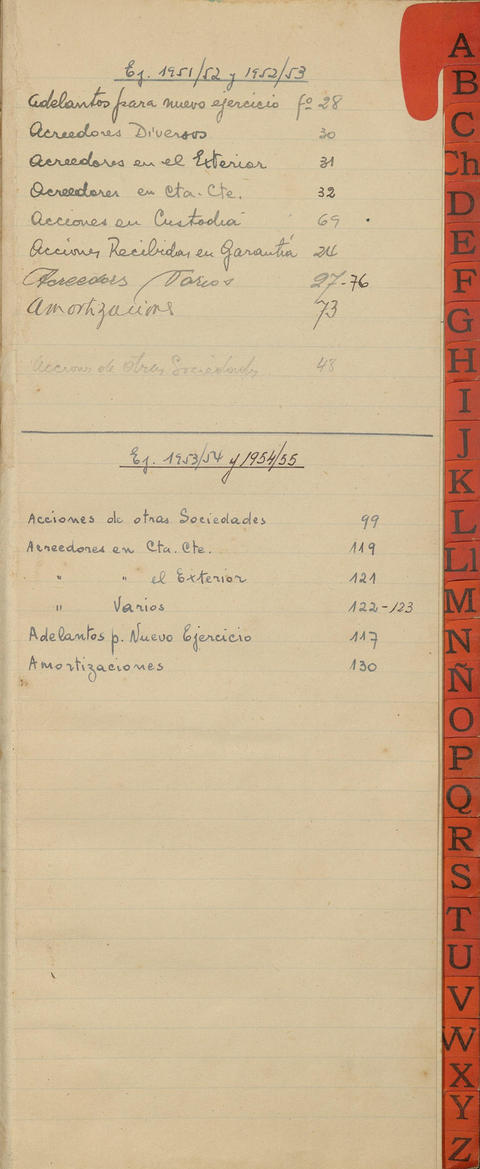 Ej. 1951/52 y 1952/53
Adelantos para nuevo ejercicio fº 28
Acreedores Diversos 30
Acreedores en el Exterior 31
Acreedores en Cta. Cte. 32
Acciones en Custodia 69
Acciones Recibidas en Garantía 24
Acreedores Varios 27-76
Amortizaciones 73
Acciones de otras Sociedades 48
Ej. 1953/54 y 1954/55
Acciones de otras Sociedades 99
Acreedores en Cta. Cte. 119
" " el Exterior 121
" Varios 122-123
Adelantos p. Nuevo Ejercicio 117
Amortizaciones 130
A
B
C
Ch
D
E
F
G
H
I
J
K
L
Ll
M
N
Ñ
O
P
Q
R
S
T
U
V
W
X
Y
Z